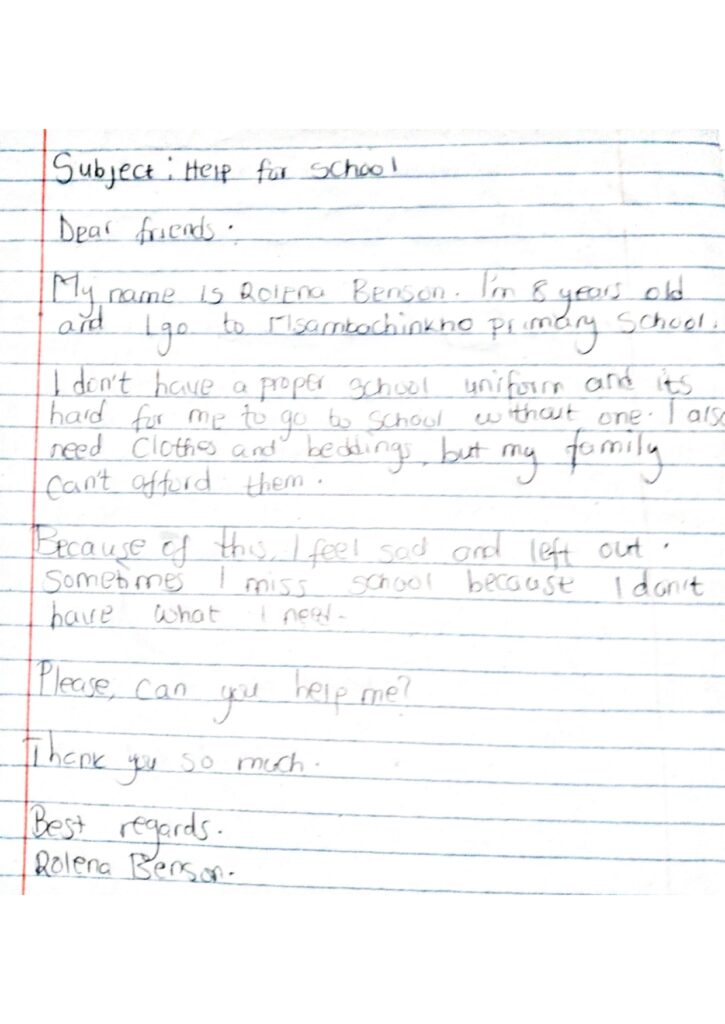 Subject: Help for school
Dear friends.
My name is Rolena Benson. I'm 8 years old
and I go to primary School.
I don't have a proper school uniform and its
hard for me to go to school without one. I also
need Clothes and beddings, but my family
can't afford them.
Because of this, I feel sad and left out.
Sometimes I miss school because I don't
have what I need.
Please, can you help me?
Thank you so much.
Best regards.
Rolena Benson.